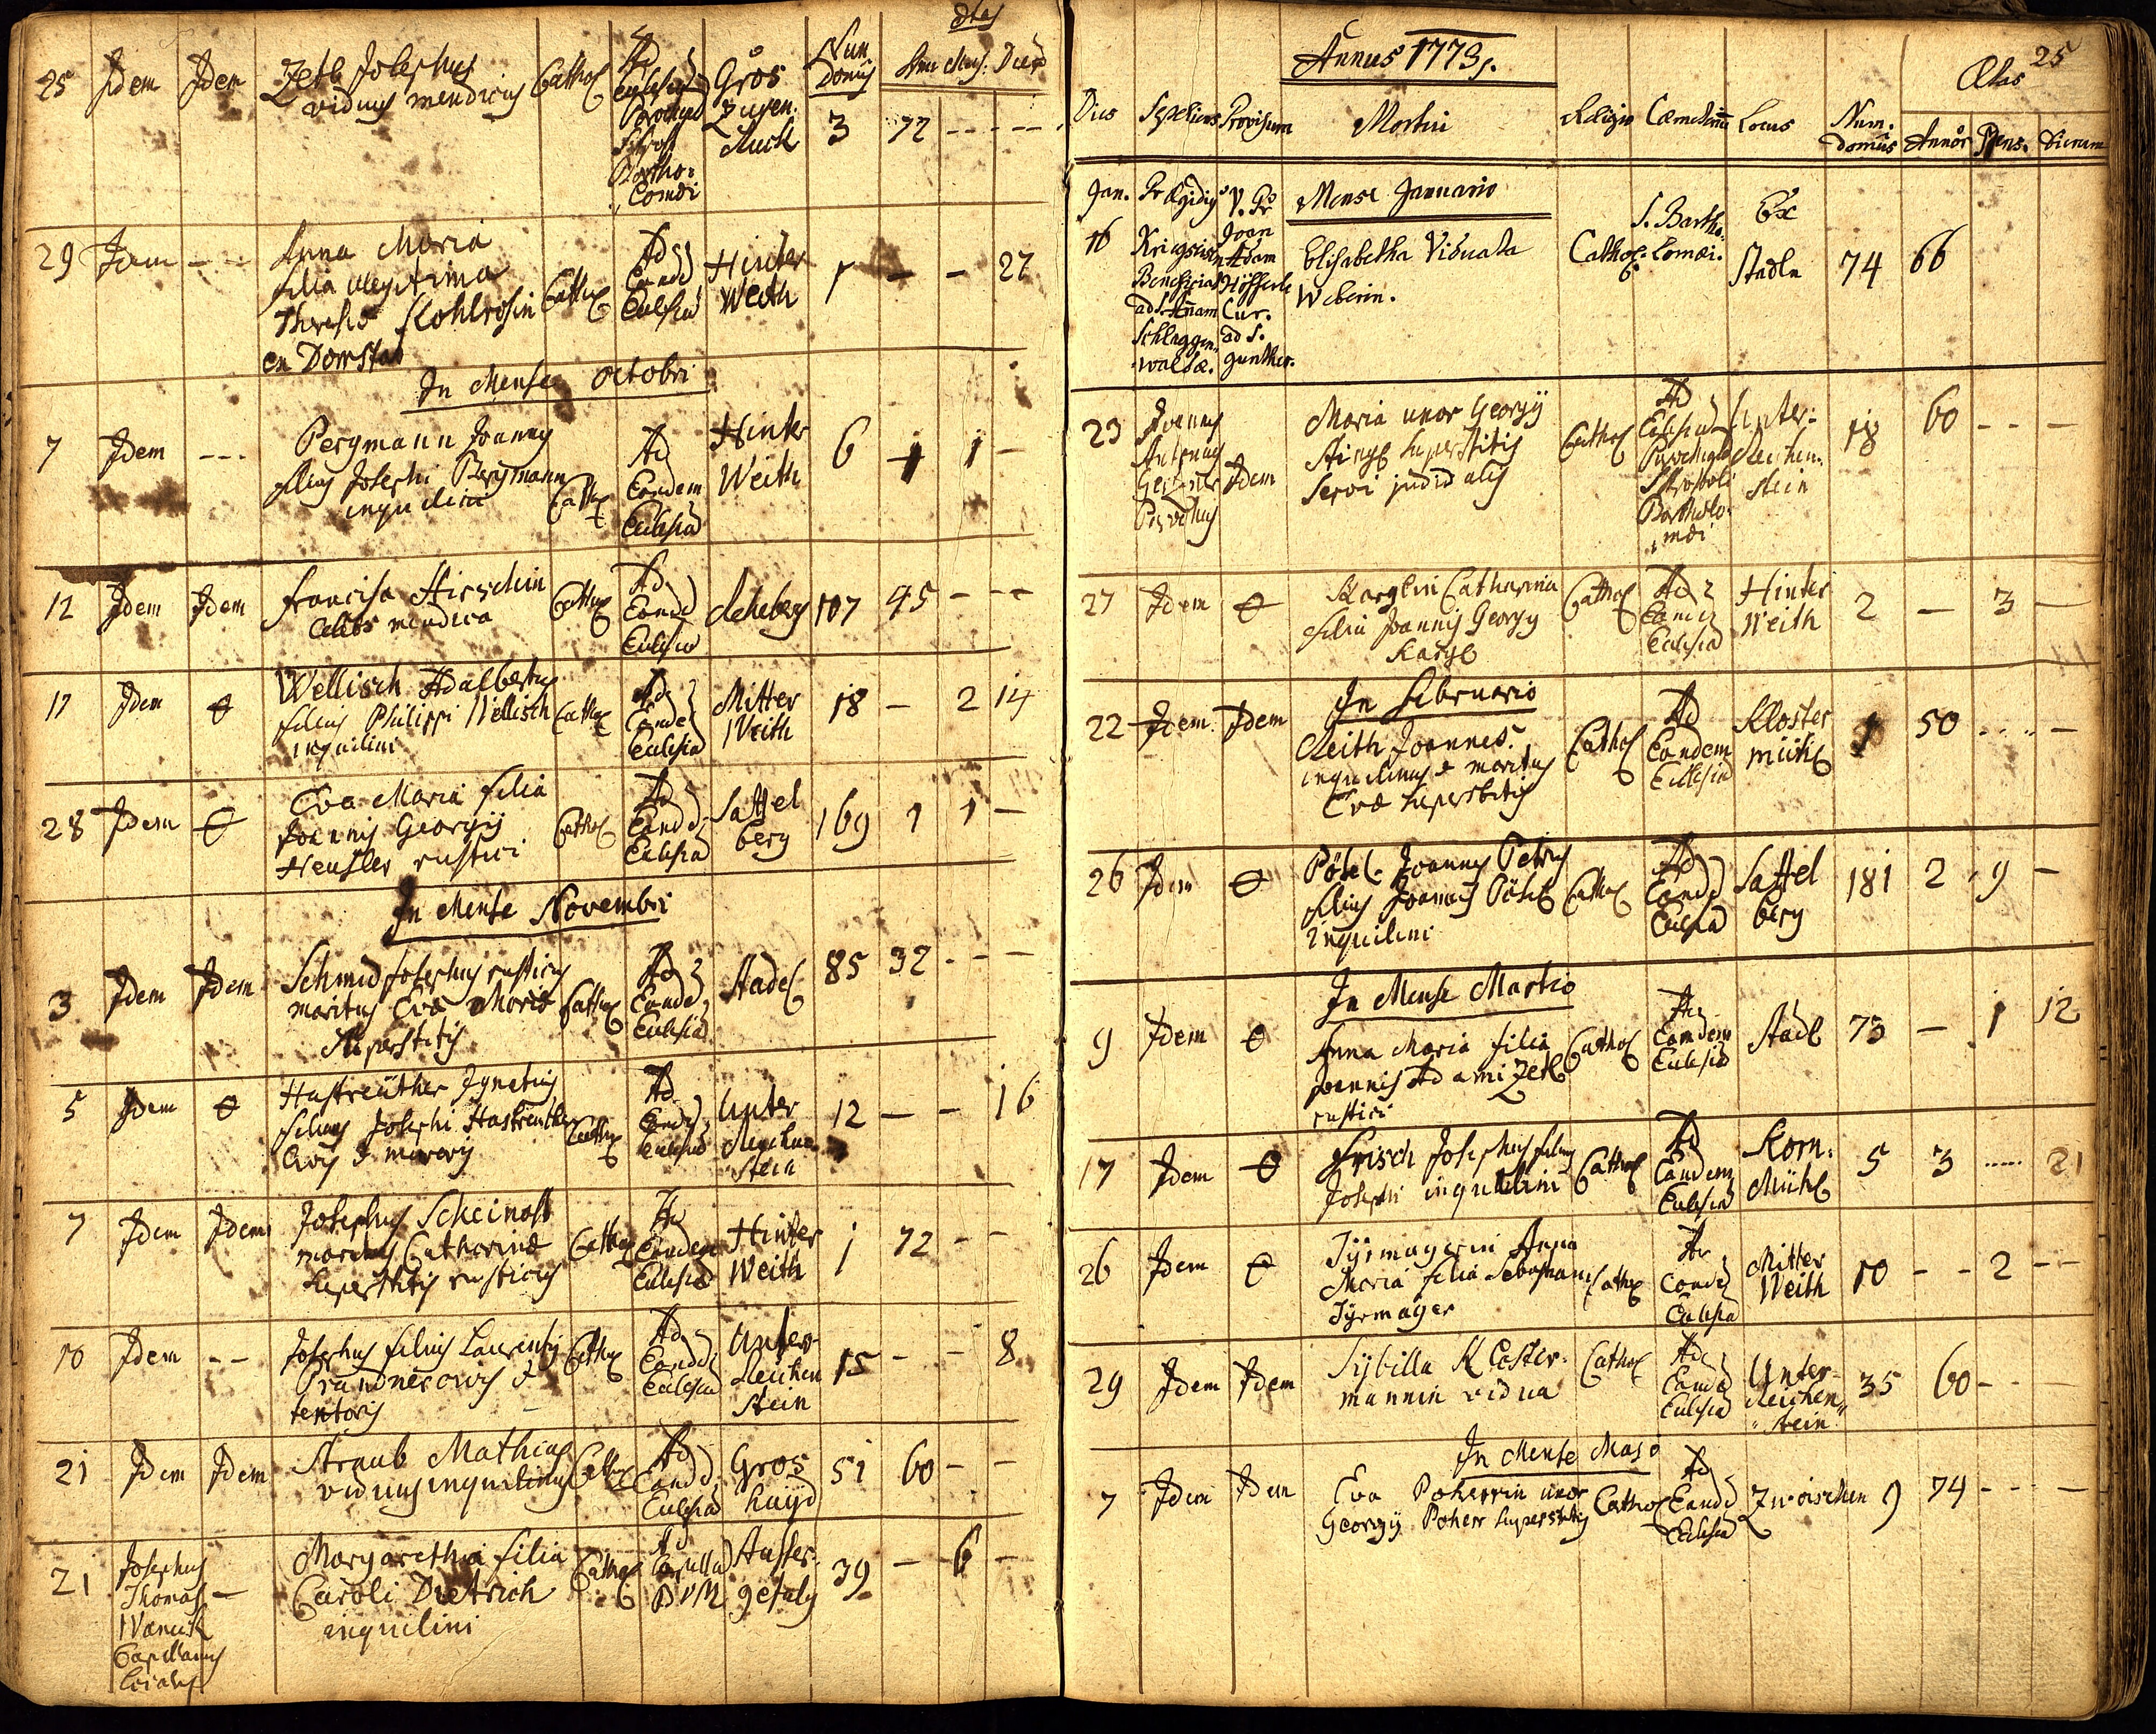 25 Idem Idem Zetl Josephus viduus mendicus Cathol Ad Ecclesiā Parochial S. Bartho: lomæi Gros Zugen: Num Domus 3 72 - - - -
29 Idem - - Anna Maria
filia illegitima
Theresiæ Kohlrosin Cathol Ad Eandē Ecclesiā Hinter Weith 1 - - 27
In Mense Octobri
7 Idem - - - Pergmann Joannes
filius Josephi Bergmann
inquilini Cathol Ad Eandem Ecclesiā Hinter Weith 6 1 1 -
12 Idem Idem Francisca Hirschin
mendica Cathol Ad Eandē Ecclesiā Rehberg 107 45 - - -
17 Idem θ Wellisch Adalbertus
filius Philippi Wellisch
inquilini Cathol Ad Eandē Ecclesiā Mitter Weith 18 - 2 14
28 Idem θ Eva Maria filia
Joannis Georgij
Heusler rustici Cathol Ad Eandē Ecclesiā Sattel berg 169 1 1 -
In Mense Novembri
3 Idem Idem Schmid Josephus rusticus
maritus Eva Maria
superstitis Cathol Ad Eandē Ecclesiā Stadl 85 32 - - -
5 Idem θ Hastreüther Ignatius
filius Josephi Hastreüther
Civis & murarij Cathol Ad Eandē Ecclesiā Unter Reichen stein 12 - - 16
7 Idem Idem Josephus Scheinost
maritus Catharinæ
superstitis rusticus Cathol Ad Eandem Ecclesiā Hinter Weith 1 72 - -
10 Idem - - Josephus filius Laurentij
Prandner civis &
tentoris Cathol Ad Eandē Ecclesiā Unter Reichen Stein 15 - - 8
21 Idem Idem Straub Mathias
viduus inquilinus Cathol Ad Eandē Ecclesiā Gros hayd 51 60 - -
21 Josephus
Thomas -
Capellanus
Margaretha filia
Caroli Dietrich
inquilini Cathol Ad Capellā BVM Ausser gefild 39 - 6 -
Annus 1773.
25
Dies Sepeliens Provisum Mortui Religio Cæmeteriū Locus Num. domus Ætas Annor Mens. Dierum
Mense Januario
Jan. 16 P. Ægidius
Beneficiat
ad S. Annam
Schlaggen-
waldæ. V. Pr
Joan
Adam
Cur.
ad S.
gunther.
Elisabetha Viduata
Weberin. Cathol. S. Bartho- lomæi. Ex Stadln 74 66
23 Joannes
Antonius
Parochus Idem Maria uxor Georgij
superstitis
servi Cathol Ad Ecclesiā Parochial S. Apostoli Bartholo- mæi Unter- Reichen: stein 18 60 - - -
27 Idem θ Karglin Catharina
filia Joannis Georgij
Kargl Cathol Ad Eandē Ecclesiā Hinter Weith 2 - 3 -
In Februario
22 Idem Idem Reith Joannes
inquilinus & maritus
Evæ superstitis Cathol Ad Eandem Ecclesiā Kloster mühl 1 50 - - -
26 Idem θ Pösl Joannes Petrus
filius Joannis Pösl
inquilini Cathol Ad Eandē Ecclesiā Sattel berg 181 2 9 -
In Mense Martio
9 Idem θ Anna Maria filia
Joannis Adami Zetl
rustici Cathol Ad Eamdem Ecclesiā Stadl 73 - 1 12
17 Idem θ Frisch Josephus filius
Josephi inquilini Cathol Ad Eamdem Ecclesiā Korn: Mühl 5 3 ..... 21
26 Idem θ Tÿrmayerin Anna
Maria filia Sebastiani
Tÿrmayer Cathol Ad Eandē Ecclesiā Mitter Weith 10 - - 2 - -
29 Idem Idem Sybilla Kloster-
mannin vidua Cathol Ad Eandē Ecclesiā Unter- Reichen- stein 35 60 - - -
In Mense Majo
7 Idem Idem Eva Poherrin uxor
Georgij Poherr superstitis Cathol Ad Eandē Ecclesiā Zwoischen 9 74 - - - -